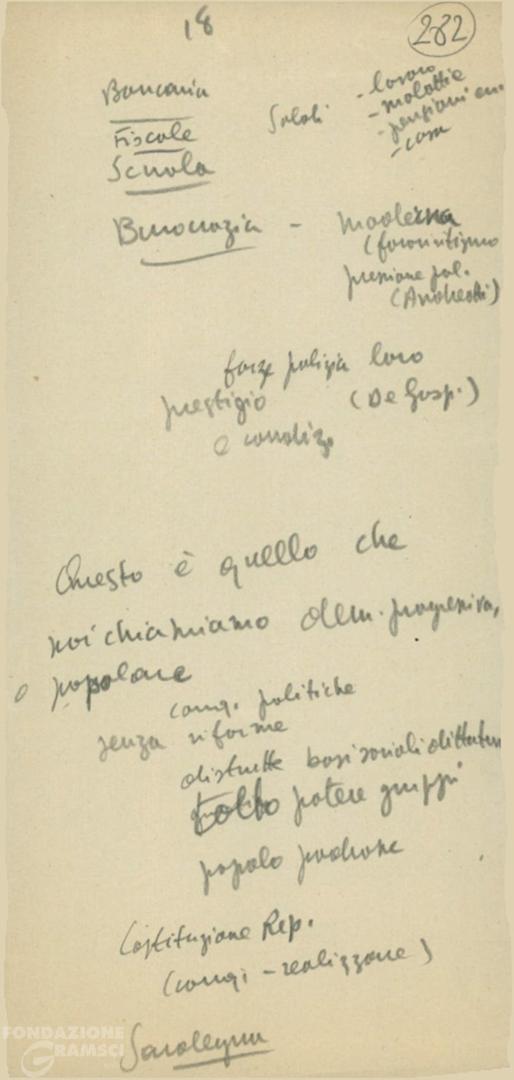 18
282
Bancaria
Fiscale
Scuola
Sociali
- lavoro
- malattie
- pensioni
- casa
Burocrazia - moderna
(favoritismo
pressione pol.
(Andreotti)
forze polizia loro
prestigio (De Gasp.)
e
Questo è quello che
noi chiamiamo dem. progressiva,
o popolare
conq. politiche
senza riforme
distrutte basi sociali dittatura
tolto potere gruppi
popolo padrone
Costituzione Rep.
(conqi - realizzare)
Sardegna
FONDAZIONE
GRAMSCI